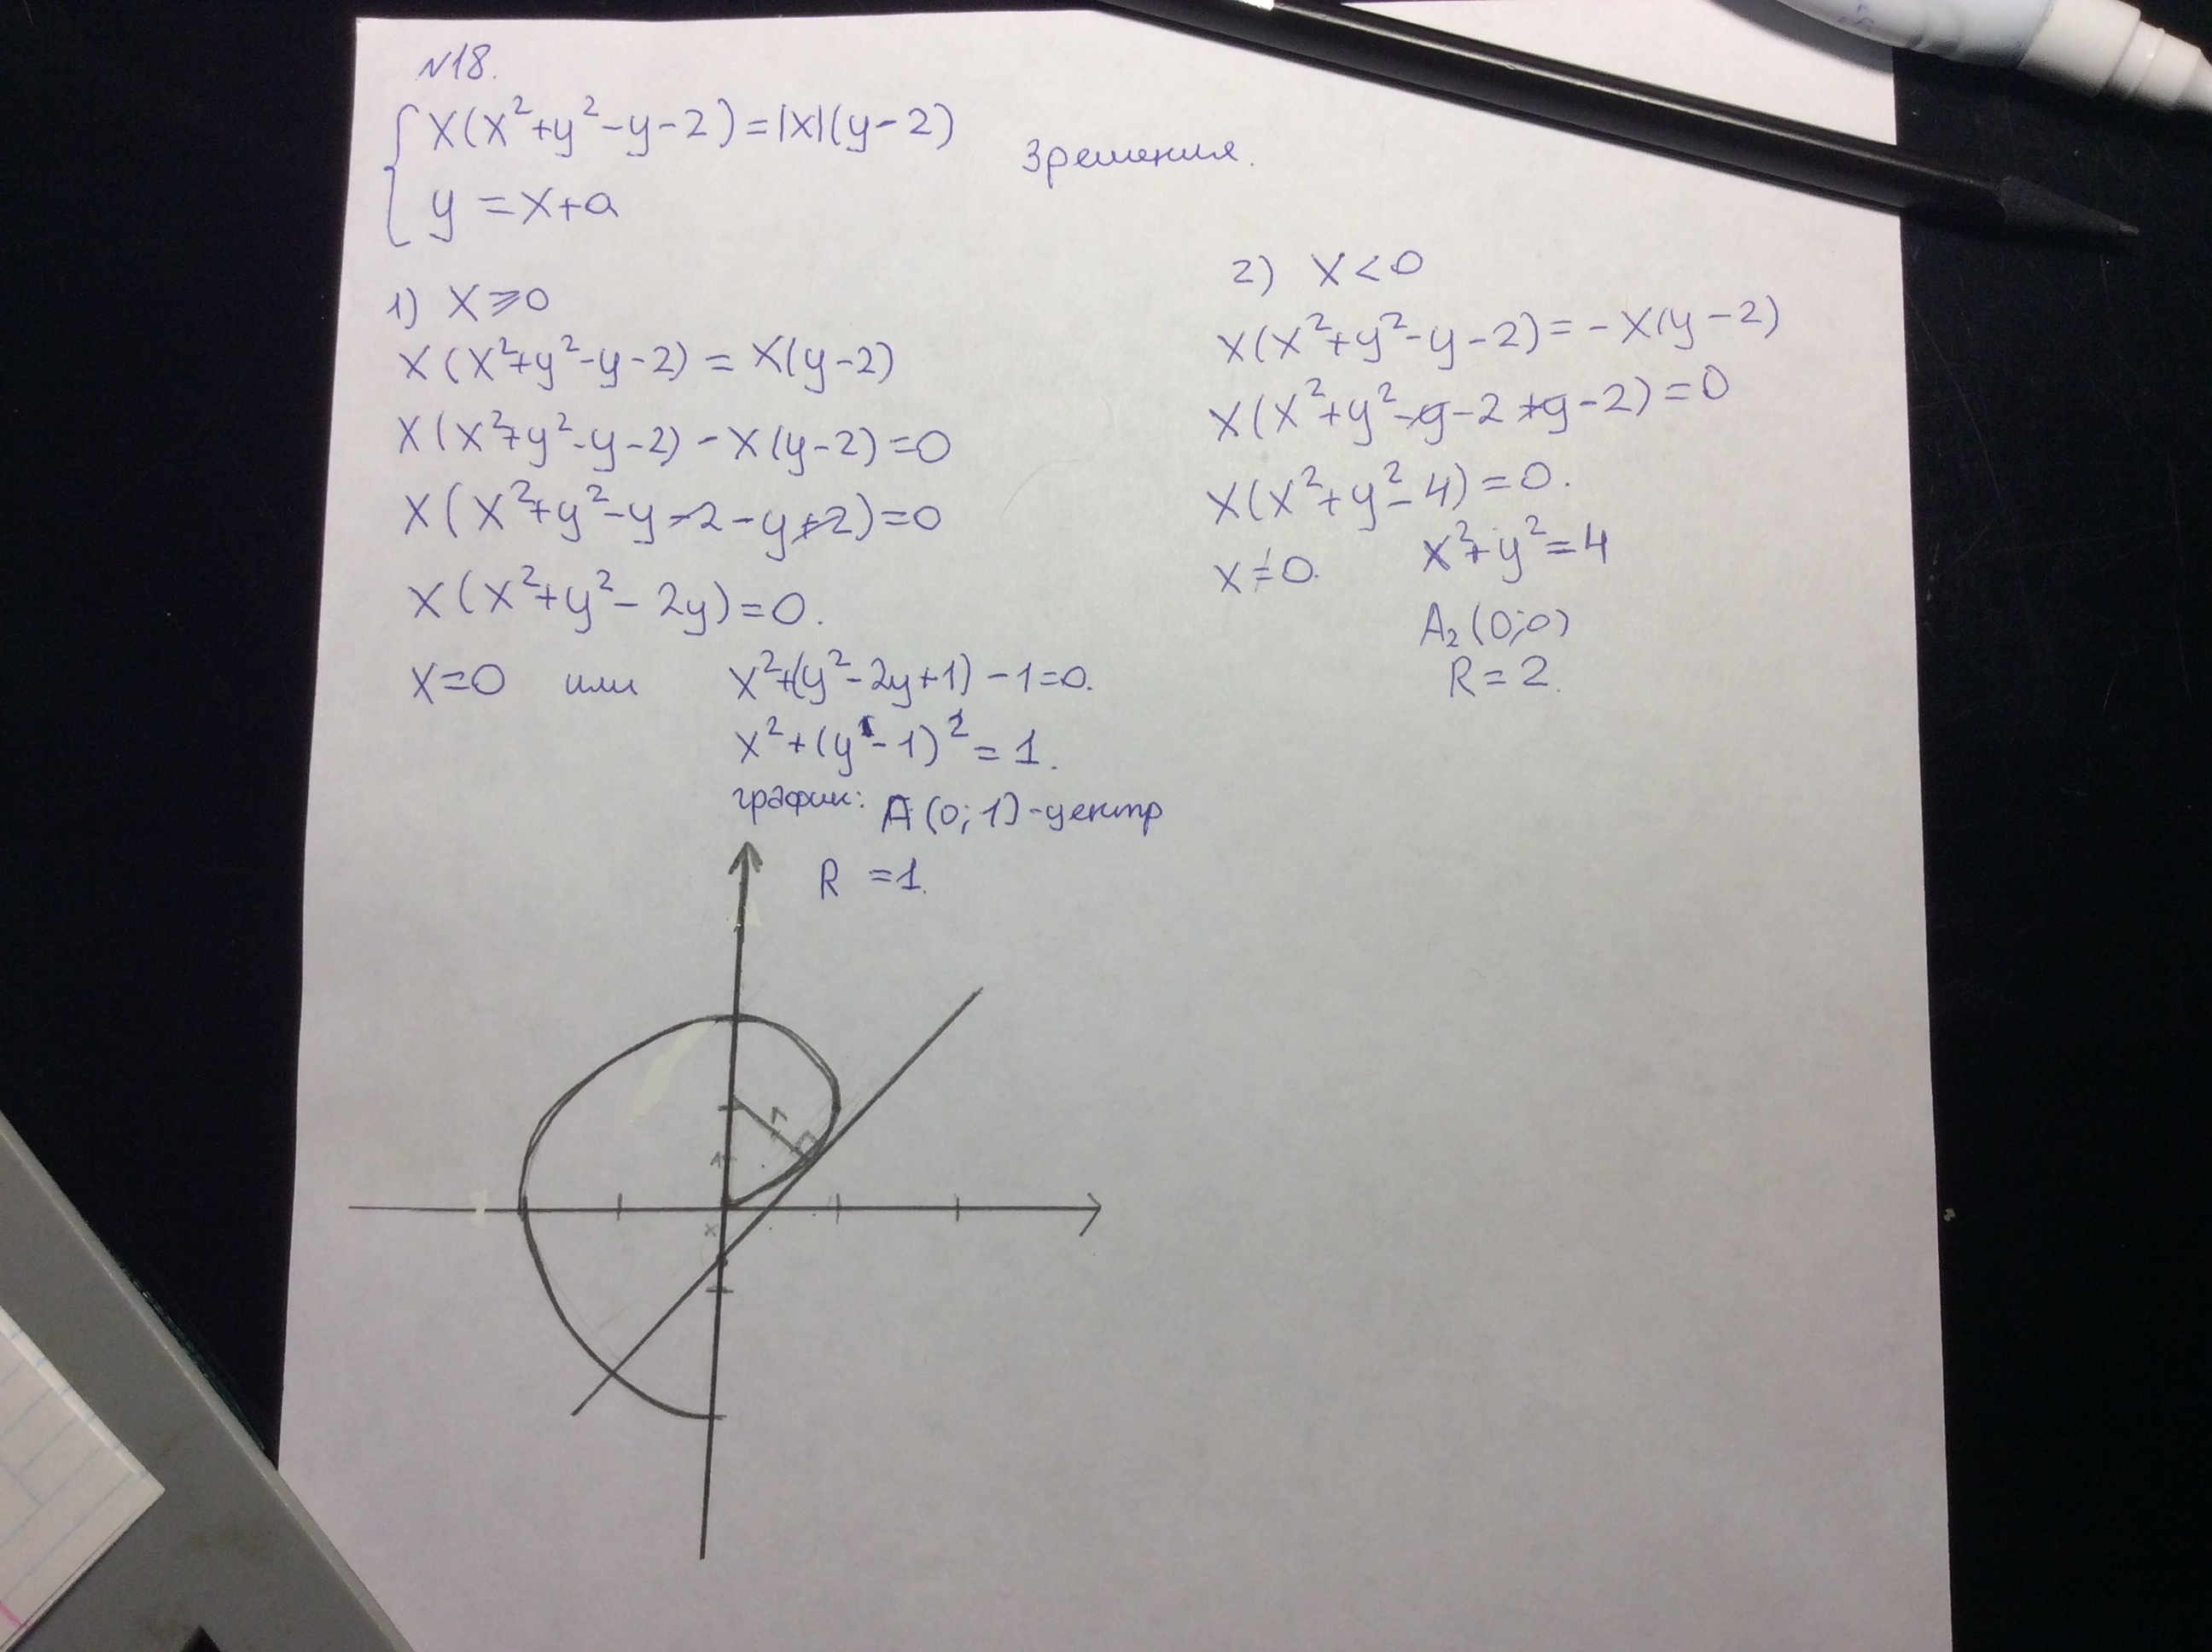 N18.
x(x²+y²-y-2)=|x|(y-2)
y=x+a
3 решения.
1) x⩾0
x(x²+y²-y-2)=x(y-2)
x(x²+y²-y-2)-x(y-2)=0
x(x²+y²-y-2-y+2)=0
x(x²+y²-2y)=0.
x=0 или x²+(y²-2y+1)-1=0.
x²+(y-1)²=1.
график: A(0;1)-центр
R=1.
2) x<0
x(x²+y²-y-2)=-x(y-2)
x(x²+y²-y-2+y-2)=0
x(x²+y²-4)=0.
x≠0. x²+y²=4
A₂(0;0)
R=2.